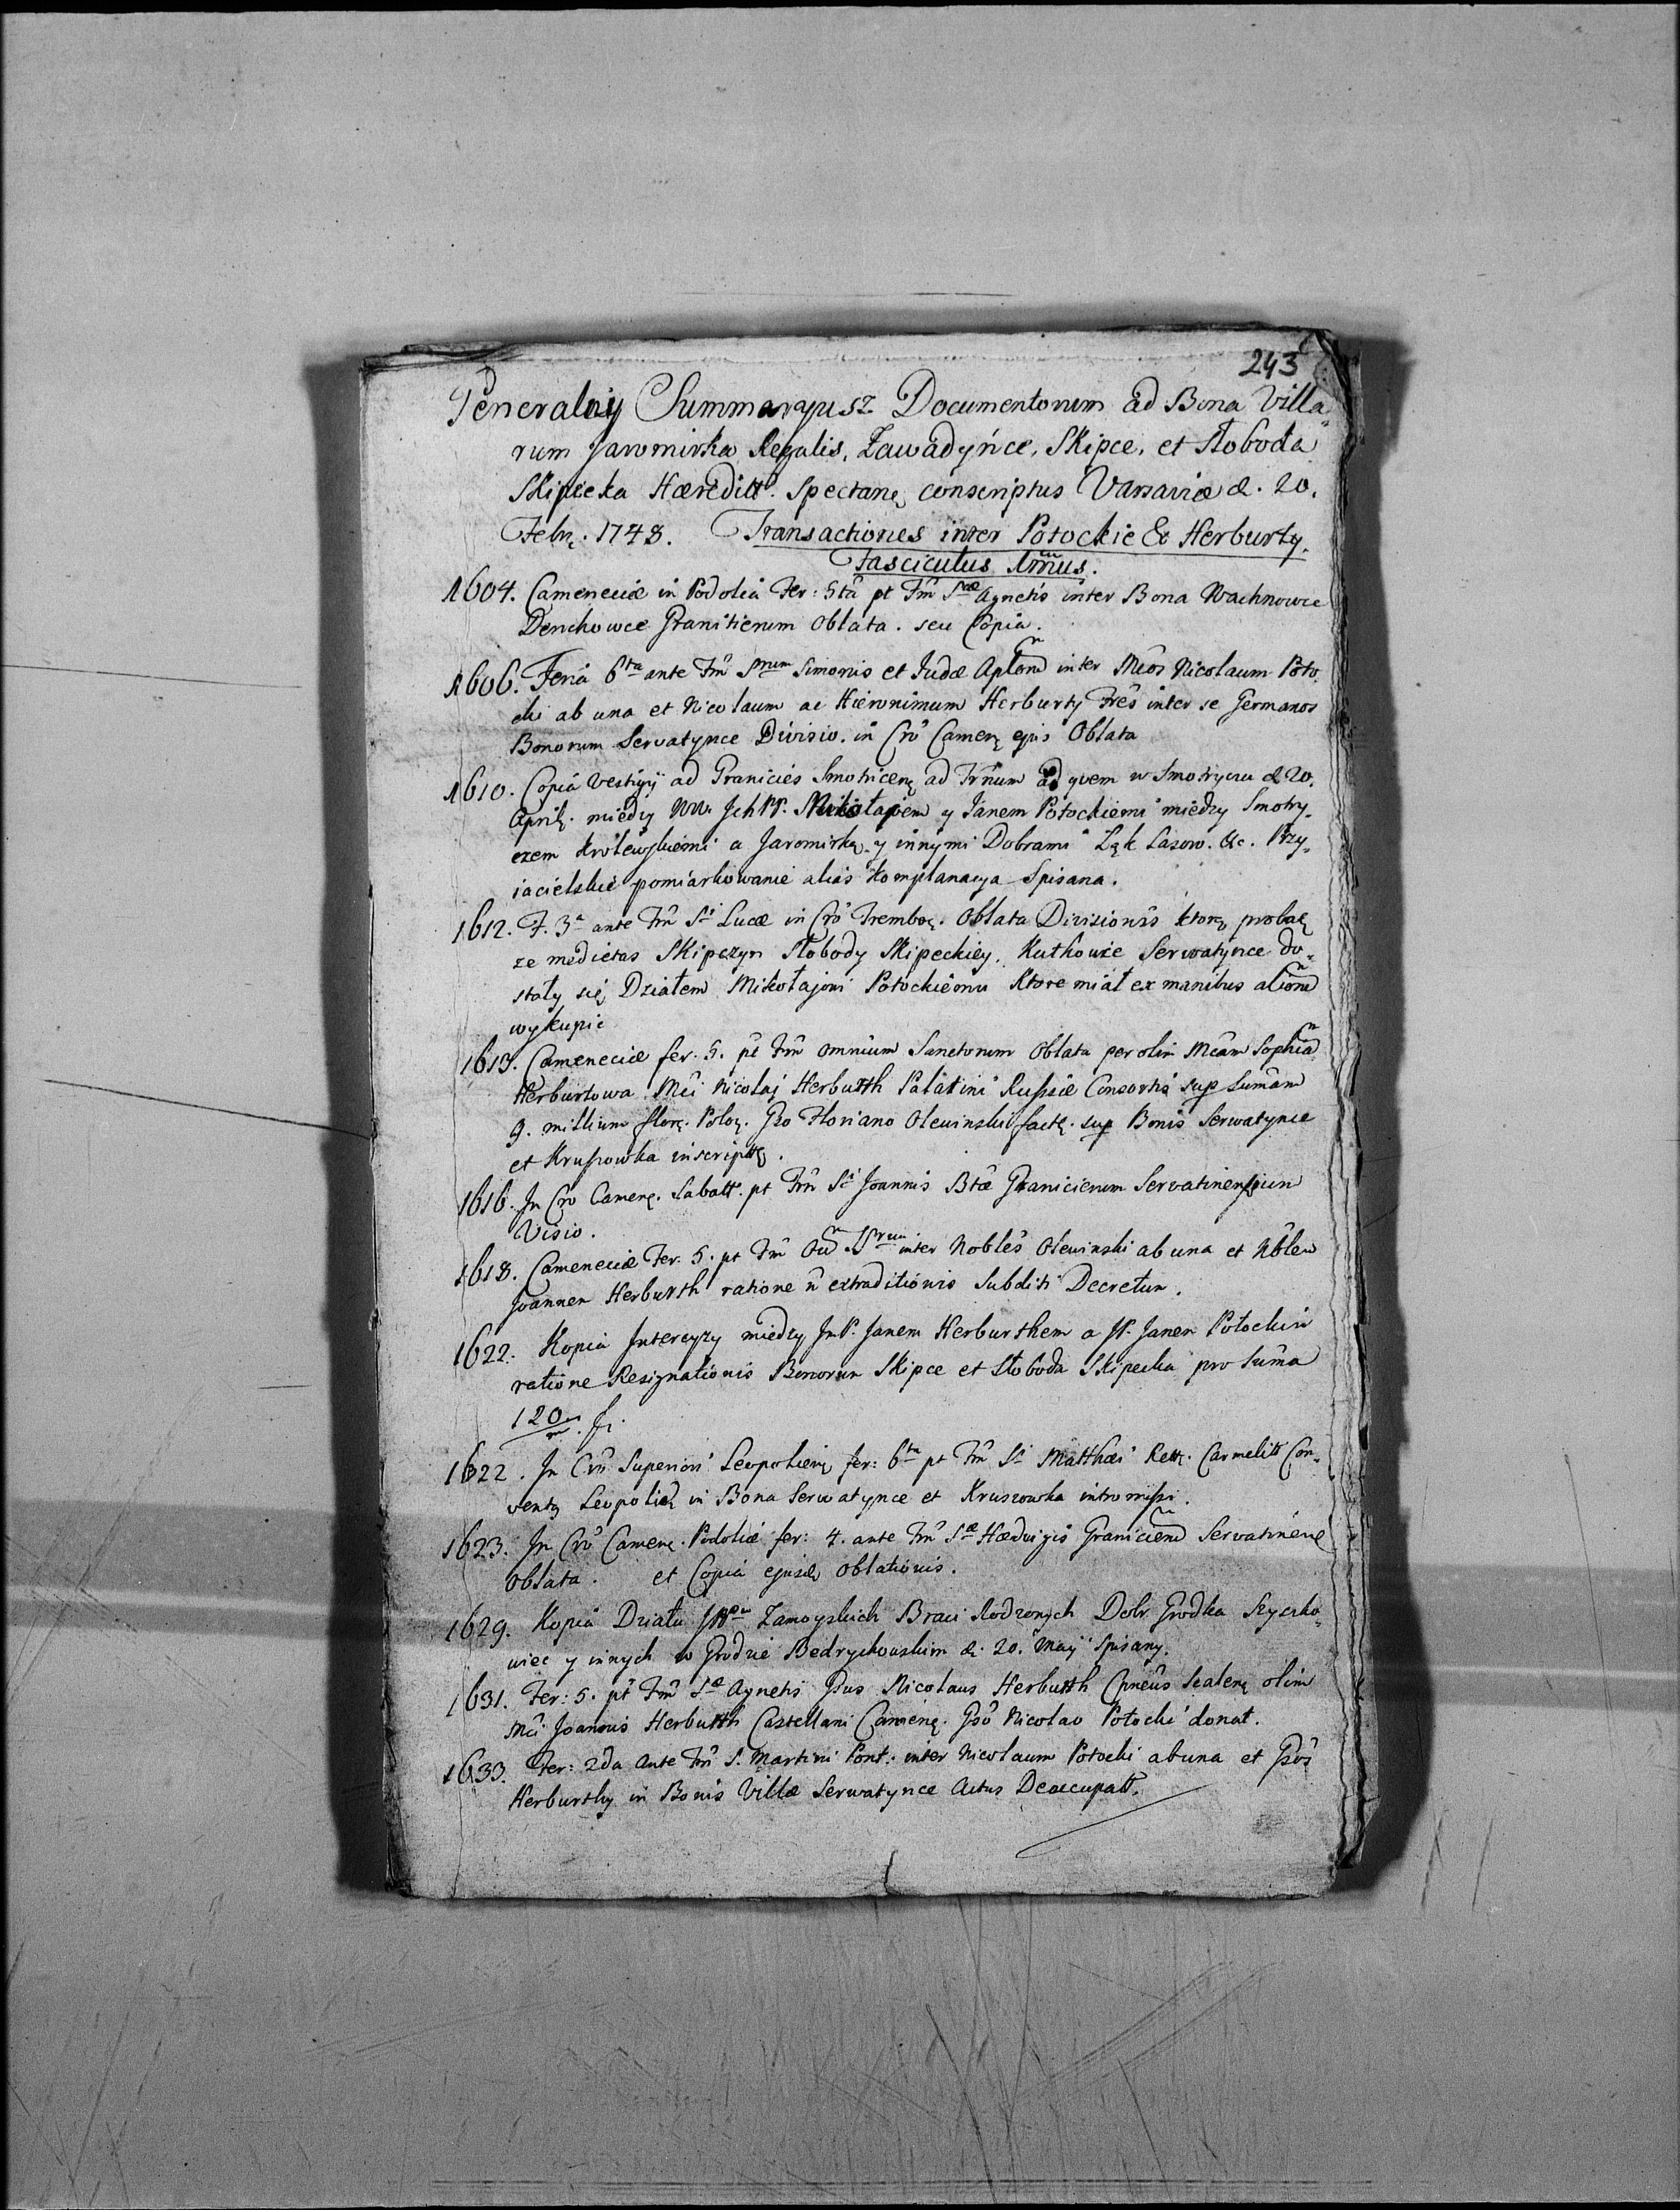 243
Generalny Summaryusz Documentorum ad Bona Villa„
rum Jaromirka Regalis, Zawadyńce, Skipce, et Słoboda
Skipiecka Hæreditt. Spectanę conscriptus Varsaviæ d. 20.
Febrę. 1748. Transactiones inter Potockie & Herburty.
Fasciculus 1mus.
1604. Cameneciæ in Podolia Fer: 5tâ pt Fm̃ Scæ Agnetis inter Bona Wachnowce
Denchowce Granicierum Oblata. seu Copia.
1606. Feriâ 6ta ante Fm̃ Srum Simonis et Judæ Aplõm inter Mcôs Nicolaum Poto„
cki ab una et Nicolaum ac Hieronimum Herburty Frês inter se Germanos
Bonorum Servatynce Divisio. in Crô Camenę ejus Oblata
1610. Copia Vestigij ad Granicies Smotricenę ad Frñum ad quem w Smotryczu d 20.
Aprilę. miedzy WW. Ich PP. Mikołajem y Janem Potockiemi miedzy Smotry„
czem Krolewskiemi a Jaromirką y innymi Dobrami Łąk Lasow. &c. Przy„
iacielskie pomiarkowanie alias komplanacya Spisana.
1612. F. 3a ante Fm̃ Si Lucæ in Crô Trembœ. Oblata Divisionis ktorę probaę
ze medietas Skipczyn Słobody Skipeckiey, Kutkowce Serwatynce do„
stały się Działem Mikołajowi Potockiemu Ktore miał ex manibus aliõm
wykupic
1613. Cameneciæ fer. 5. pt Fm̃ Omnium Sanctorum Oblata per olim Mcâm Sophiam
Herburtowa Mci Nicolaj Herburth Palatini Russiæ Consortis sup Sumâm
9. millium florę. Polo. Gso Floriano Olewinski factę. sup Bonis Serwatynce
et Kruszowka inscriptę.
1616. In Crô Camenę. Sabatt. pt Fm̃ Si Joannis Btæ Granicierum Servatinensium
Visio.
1618. Cameneciæ Fer. 5. pt Fm̃ Om̃ Srum inter Nobles Olewinski ab una et Nblem
Joannem Herburth ratione ñ extraditionis Subditi Decretum.
1622. Kopia Intercyzy miedzy JmP. Janem Herburthem a JP. Janem Potockim
ratione Resignationis Bonorum Skipce et Słoboda Skipecka pro Suma
120/m. fl.
1622. In Crô Superiori Leopoliensi fer: 6ta pt Fm̃ Si Matthæi Rettę. Carmelitt Con„
ventę Leopolię in Bona Serwatynce et Kruszowka intromissi.
1623. In Crô Camenę. Podoliæ fer: 4. ante Fm̃ Sæ Hædvigis Graniciem Servatinenę
Oblata. et Copia ejusdę Oblationis.
1629. Kopia Działu JPPw Zamoyskich Braci Rodzonych Dobr Grodka Szyczko„
wiec y innych w Grodzie Bedrychowskim d. 20. Maij Spisany.
1631. Fer: 5. pt Fm̃ Sæ Agnetis Gsus Nicolaus Herburth Cpneûs Scalenę olim
Mci Joannis Herburth Castellani Camenę. Gsô Nicolao Potocki donat.
1633. Fer: 2da ante Fm̃ S. Martini Pont: inter Nicolaum Potocki ab una et Gsôs
Herburthy in Bonis Villæ Serwatynce Actus Deoccupatt.